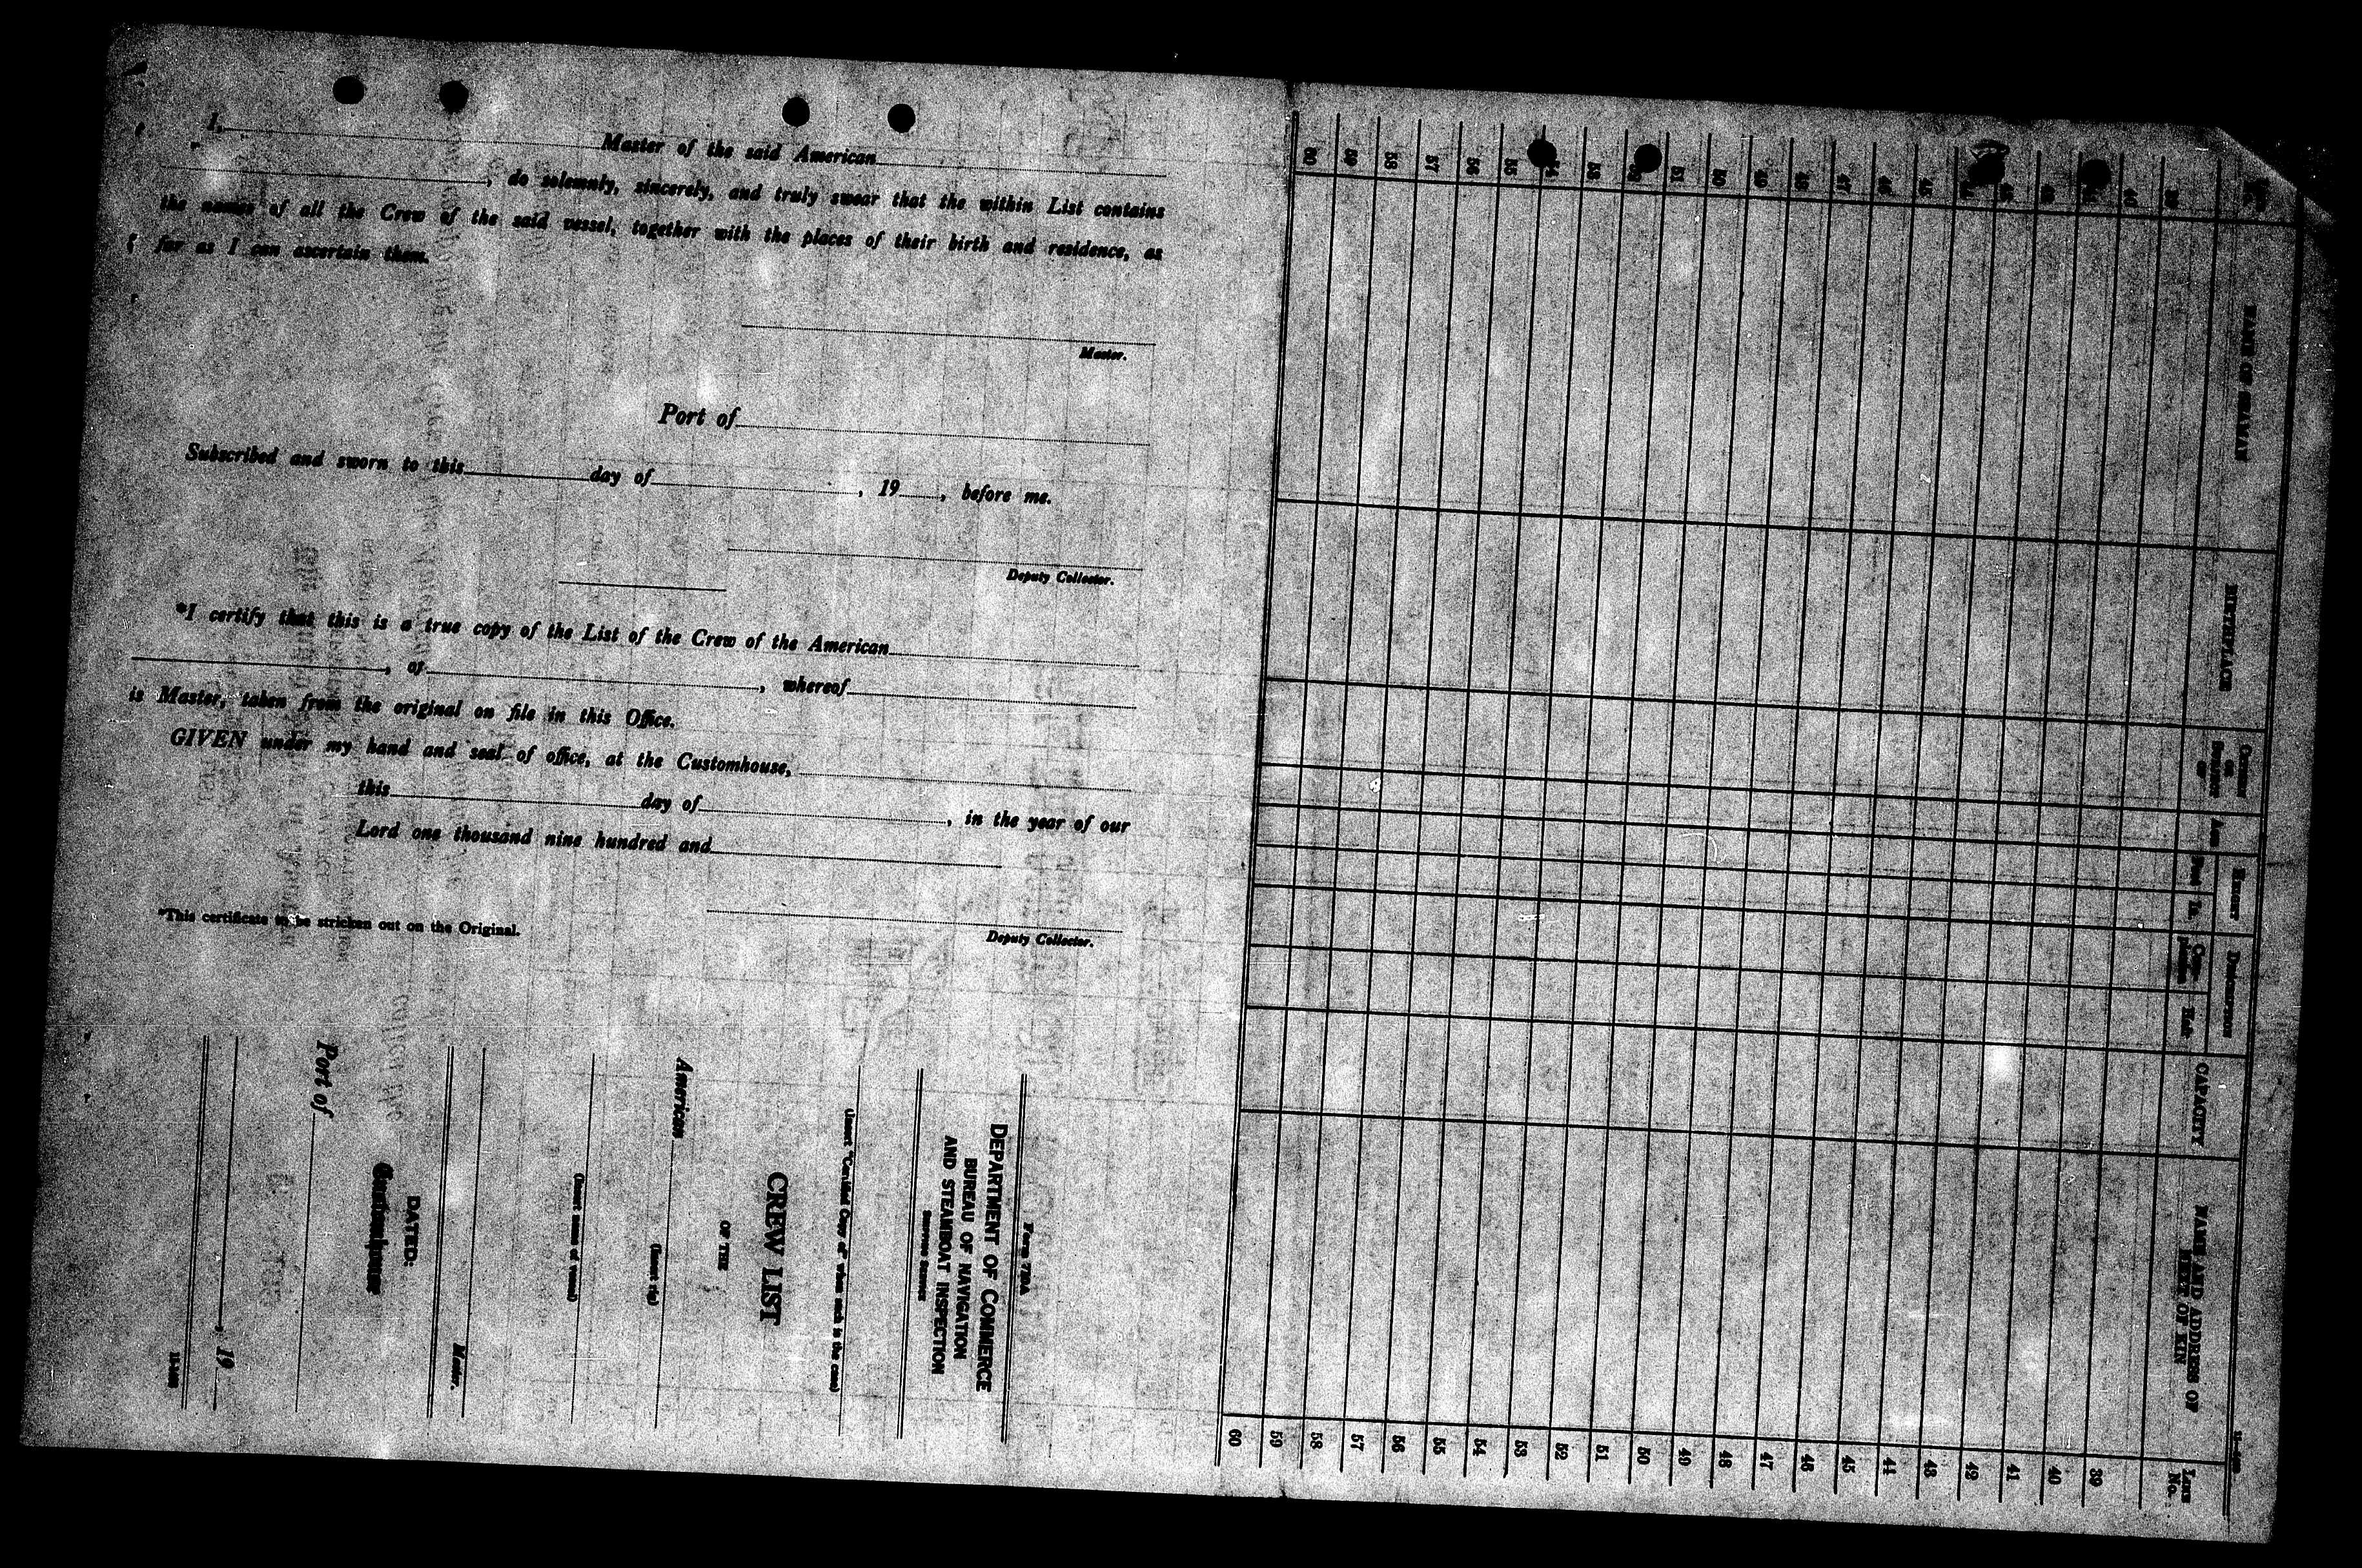 I, Master of the said American
, do solemnly, sincerely, and truly swear that the within List contains
the names of all the Crew of the said vessel, together with the places of their birth and residence, as
far as I can ascertain them.
Master.
Port of
Subscribed and sworn to this day of , 19 , before me.
Deputy Collector.
*I certify that this is a true copy of the List of the Crew of the American
, of , whereof
is Master, taken from the original on file in this Office.
GIVEN under my hand and seal of office, at the Customhouse,
this day of , in the year of our
Lord one thousand nine hundred and
*This certificate to be stricken out on the Original.
Deputy Collector.
DEPARTMENT OF COMMERCE
BUREAU OF NAVIGATION
AND STEAMBOAT INSPECTION
(Insert "Certified Copy of" when such is the case)
CREW LIST
OF THE
American
(Insert rig)
(Insert name of vessel)
Master.
DATED:
Customhouse
Port of
, 19
NAME OF SEAMAN
BIRTHPLACE
AGE
HEIGHT
Feet
In.
DESCRIPTION
Com-
plexion
Hair
CAPACITY
NAME AND ADDRESS OF
NEXT OF KIN
LINE
No.
39
40
41
42
43
44
45
46
47
48
49
50
51
52
53
54
55
56
57
58
59
60